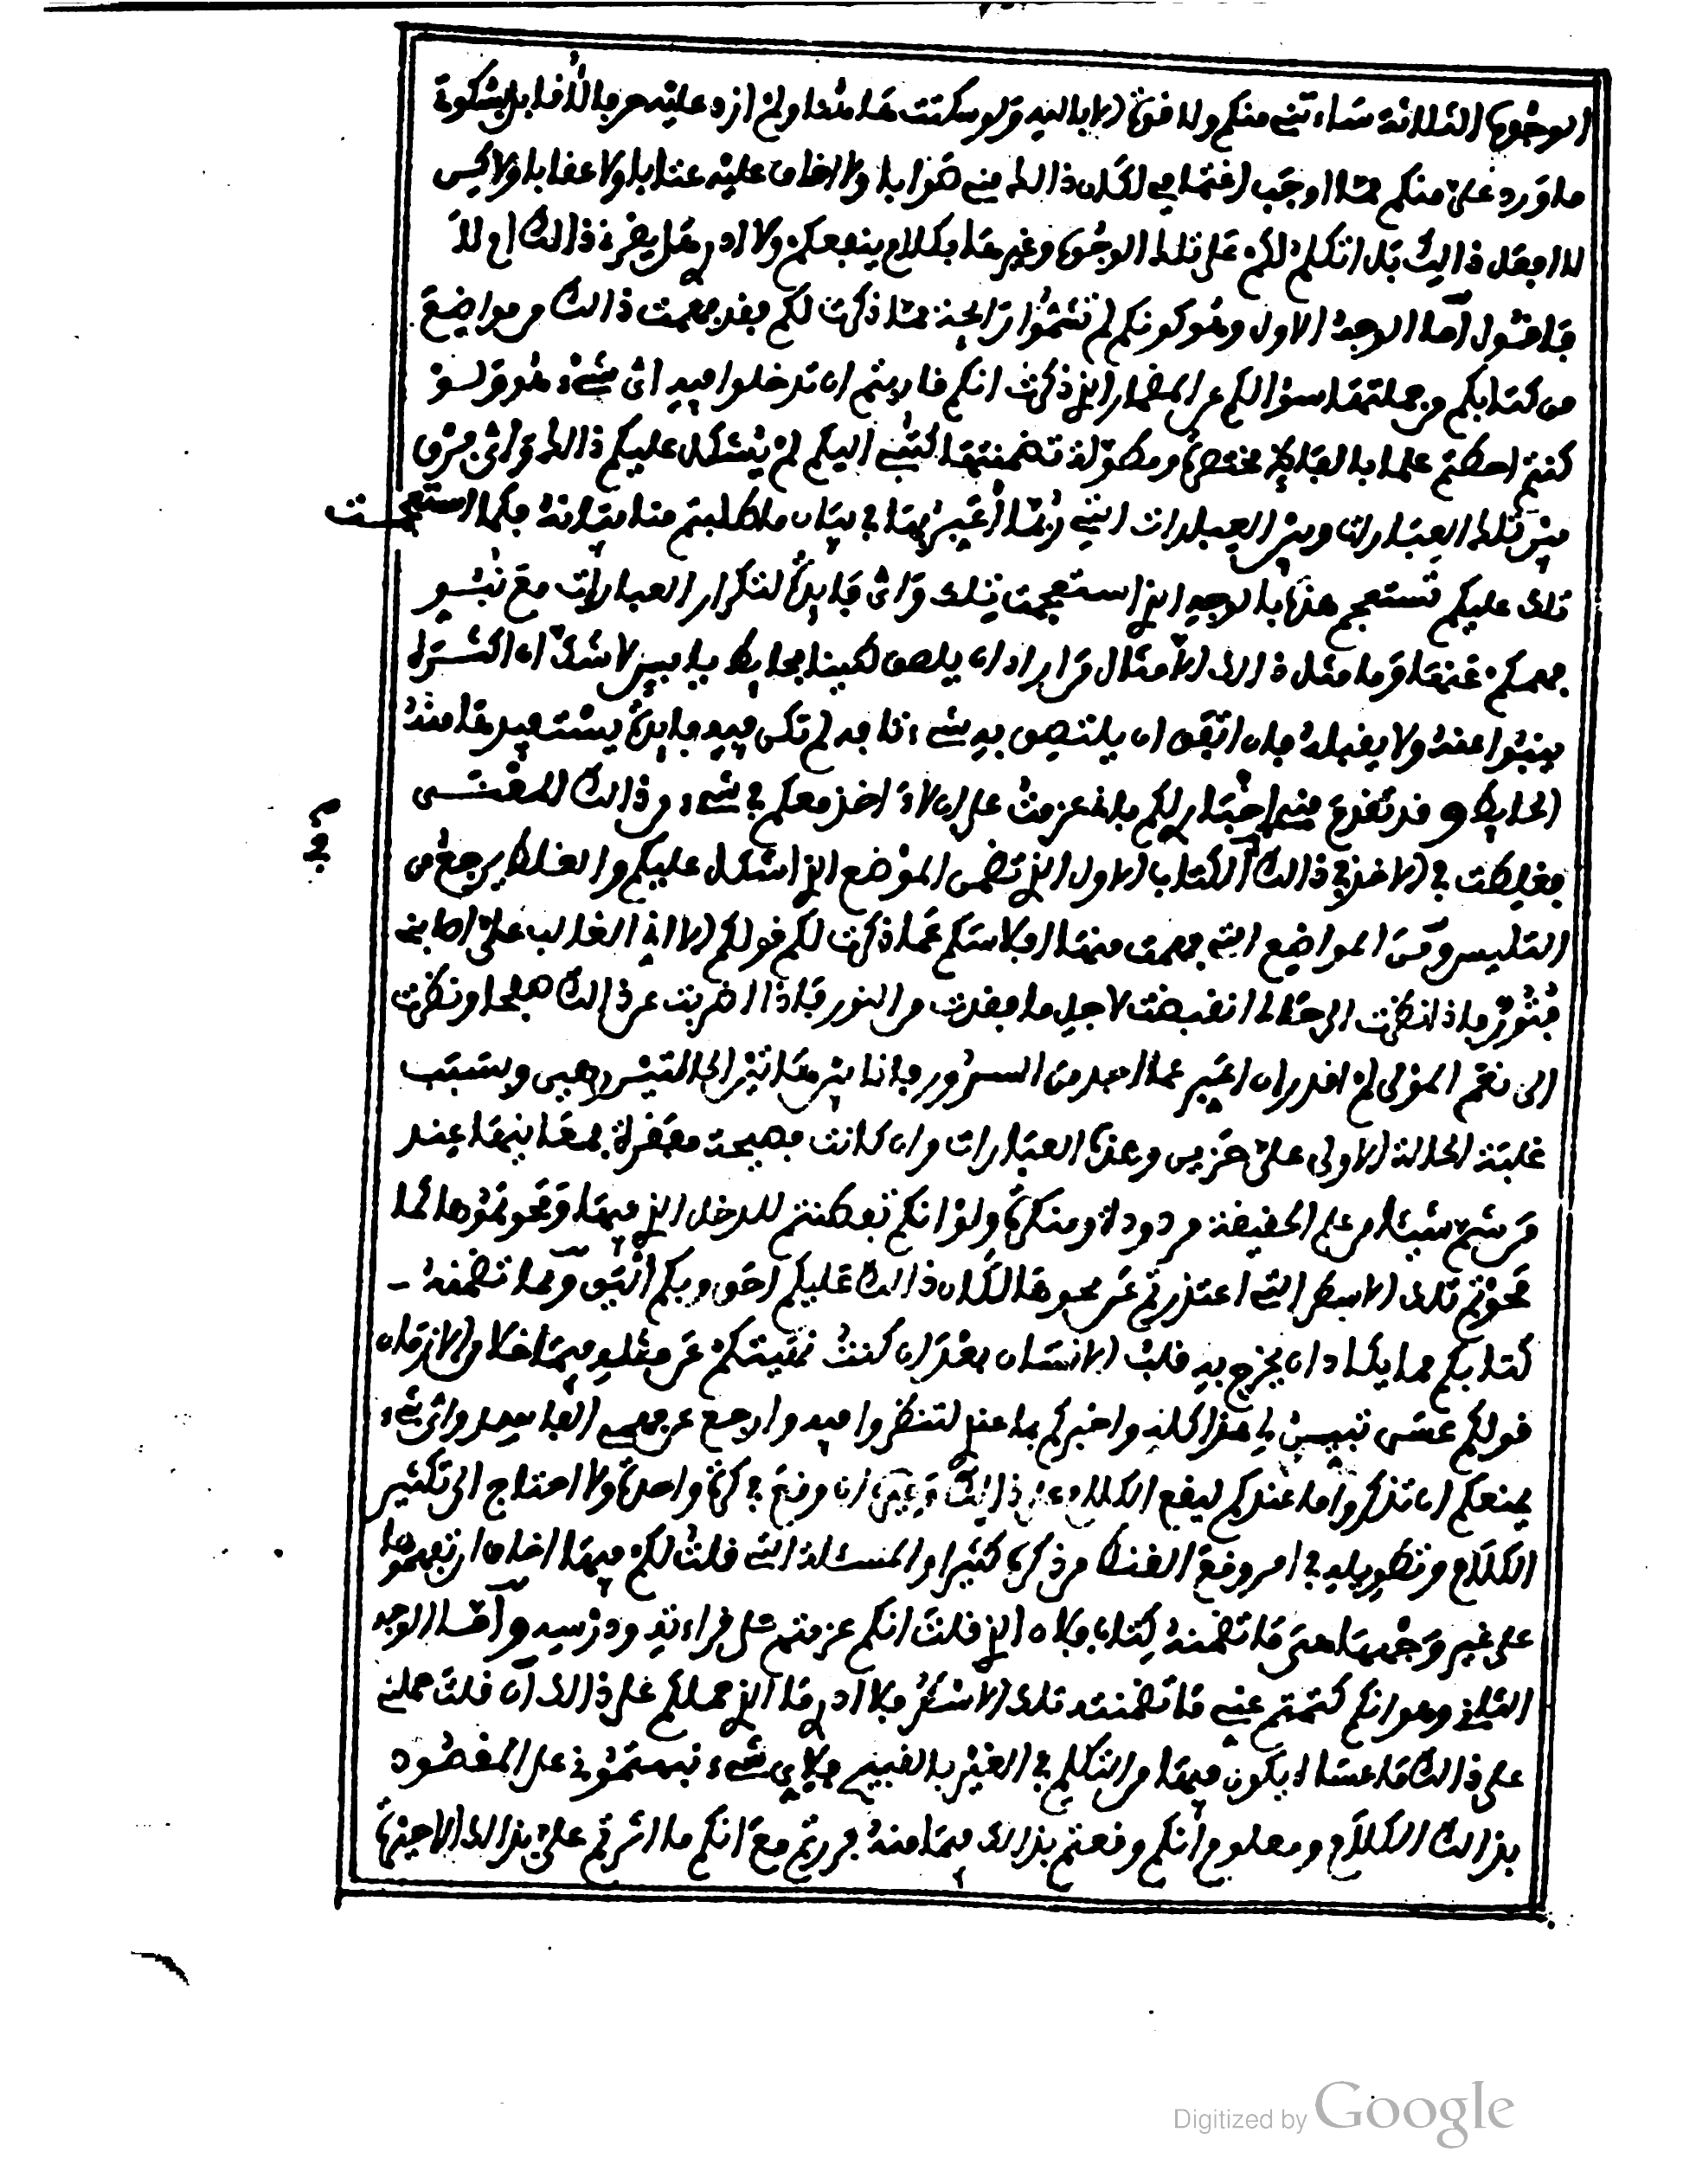 الوجوه الثلاثة ساءتني منكم ولا قوة الا بالله ولو سكتت هاهنا ولم ازد عليه حرفا لاقابل بشكوة
ما ورد علي منكم مما اوجب اغتمامي لكان ذالك مني صوابا ولا اخاف عليه عتابا ولا عقابا ولاكن
لا افعل ذالك بل اتكلم لكم على تلك الوجوه وغيرها بكلام ينفعكم ولا ادري هل يضرني ذالك ام لا
فاقول اما الوجه الاول وهو كونكم لم تشموا رايحة مما ذكرت لكم فقد فهمت ذالك من مواضع
من كتابكم من جملتها سؤالكم عن المضمار الذي ذكرت انكم قاربتم ان تدخلوا فيه اي شيء هو ولو
كنتم احطتم علما بالفاظ مختصرة ومطولة تضمنتها كتبي اليكم لم يشكل عليكم ذالك واي فرق
بين تلك العبارات وبين العبارات التي ربما اعبر بها في بيان ما طلبتم منا بيانه فكما استعجمت
تلك عليكم تستعجم هذه بالوجه الذي استعجمت تلك واي فايدة لتكرار العبارات مع نبو
فهمكم عنها وما مثل ذالك الا مثال من اراد ان يلصق لبنا بحايط يابس لا شك ان اكثره
ينبوا عنه ولا يقبله فان اتفق ان يلتصق به شيء تافه لم تكن فيه فايدة يستفيدها منه
الحايط وقد تقدم مني اخبار لكم باني عزمت على ان لا ءاخذ معكم في شيء من ذالك المعنى
فغلطت في الاخذ في ذالك الكتاب الاول الذي تضمن الموضع الذي اشكل عليكم والغلط يرجع من
التلبيس ومن المواضع التي فهمت منها افلاسكم عما ذكرت لكم قولكم الا اني الغالب علي اصابني
فتور فاذا نظرت الى حالي انقبضت لاجل ما فقدت من النور فاذا اضربت عن ذالك صفحا ونظرت
الى نعم المولى لم اقدر ان اعبر عما اجد من السرور فانا بين هاتين الحالتين رهين وبسبب
غلبة الحالة الاولى علي حزين وهذه العبارات وان كانت فصيحة مقصرة بمعانيها عند
من شم شيئا من علم الحقيقة مردودة ومنكرة ولو انكم تفطنتم للدخل الذي فيها ومحوتموها كما
محوتم تلك الاسطر التي اعتذرتم عن محوها لكان ذالك عليكم احق وبكم اليق ومما تضمنه
كتابكم مما يكاد ان يخرج به قلب الانسان بعد ان كنت نهيتكم عن مثله فيما خلا من الازمان
قولكم عسى تبين لي هذا كله واخبركم بما عندي لتنظروا فيه وارجع عن فهمي الفاسد واي شيء
يمنعكم ان تذكروا ما عندكم ليقع الكلام على ذالك وغيره ان وقع في كرة واحدة ولا احتاج الى تكثير
الكلام وتطويله في امر وقع القنط من ذكره كثيرا والمسئلة التي قلت لكم فيها اخاف ان تفهموها
على غير وجهها هي ما تضمنه كتاب فلان الذي قلت انكم عزمتم على قراءته ودرسه واما الوجه
الثاني وهو انكم كتمتم عني ما تضمنته تلك الاسطر فلا ادري ما الذي حملكم على ذالك ان قلت حملني
على ذالك ما عسى ان يكون فيها من التكلم في الغير بالقبيح فلاي شيء نبهتموني على المقصود
بذالك الكلام ومعلوم انكم وقعتم بذالك فيما منه فررتم مع انكم ما اشرتم علي بذالك الا حين